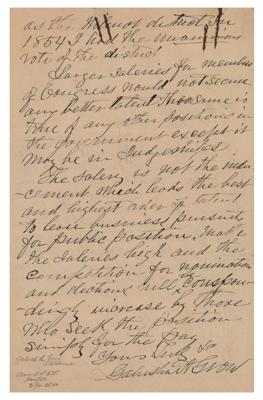 as the Wilmot district. In
1854 I had the unanimous
vote of the district
Larger Salaries for members
of Congress would not secure
any better talent. The same is
true of any other positions in
the government except it
may be in Judgeships
The Salary is not the indu-
cement which leads the best
and highest order of talent
to leave business pursuits
for public position. Make
the Salaries high and the
competition for nominations
and elections will correspon-
dingly increase by those
who seek the position
simply for the pay
Yours Truly
Galusha A Grow